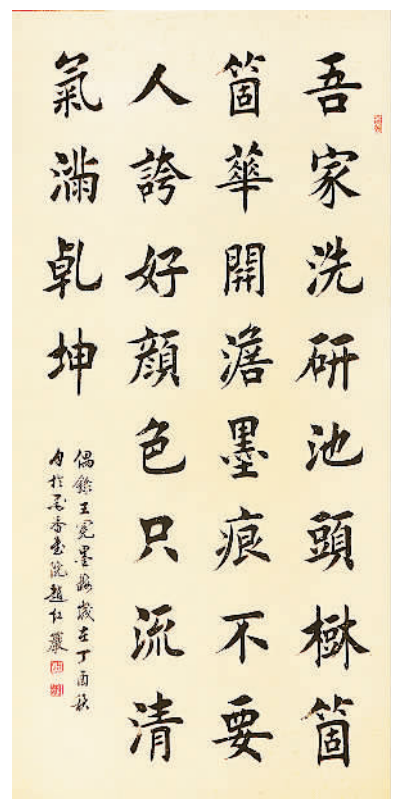 吾家洗研池頭樹箇
箇華開澹墨痕不要
人誇好顔色只流清
氣滿乾坤
偶錄王冕墨梅歲在丁酉秋
月於墨香書院趙紅巖